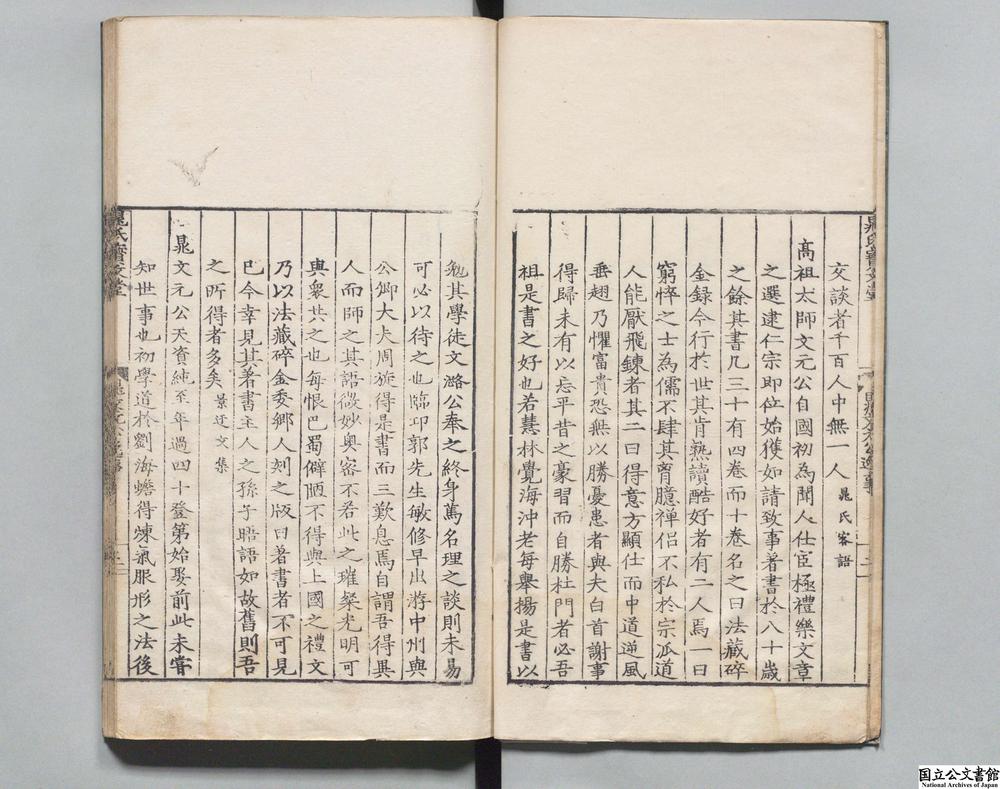 交談者千百人中無一人 晁氏客語
高祖太師文元公自國初為聞人仕宦極禮樂文章
之選逮仁宗即位始獲如請致事著書於八十歲
之餘其書凡三十有四卷而十卷名之曰法藏碎
金錄今行於世其肯熟讀酷好者有二人焉一曰
窮悴之士為儒不肆其胷臆禪侶不私於宗派道
人能厭飛鍊者其二曰得意方顯仕而中道逆風
垂翅乃懼富貴恐無以勝憂患者與夫白首謝事
得歸未有以忘平昔之豪習而自勝杜門者必吾
祖是書之好也若慧林覺海沖老每舉揚是書以
勉其學徒文潞公奉之終身篤名理之談則未易
可必以待之也臨邛郭先生敏修早出游中州與
公卿大夫周旋得是書而三歎息焉自謂吾得異
人而師之其語微妙奧密不若此之璀粲光明可
與衆共之也每恨巴蜀僻陋不得與上國之禮文
乃以法藏碎金委鄉人刻之版曰著書者不可見
已今幸見其著書主人之孫予晤語如故舊則吾
之所得者多矣 景迂文集
晁文元公天資純至年過四十登第始娶前此未嘗
知世事也初學道於劉海蟾得煉氣服形之法後
晁氏寶文堂
國立公文書館
National Archives of Japan